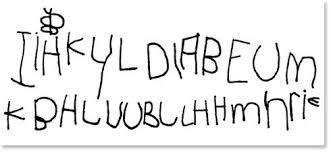 IiAKYL DIABEUm
KBHLUUBLLHHmhrie